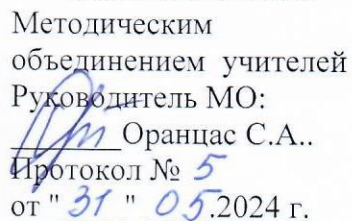 Методическим
объединением учителей
Руководитель МО:
________Оранцас С.А..
Протокол № 5
от " 31 " 05.2024 г.